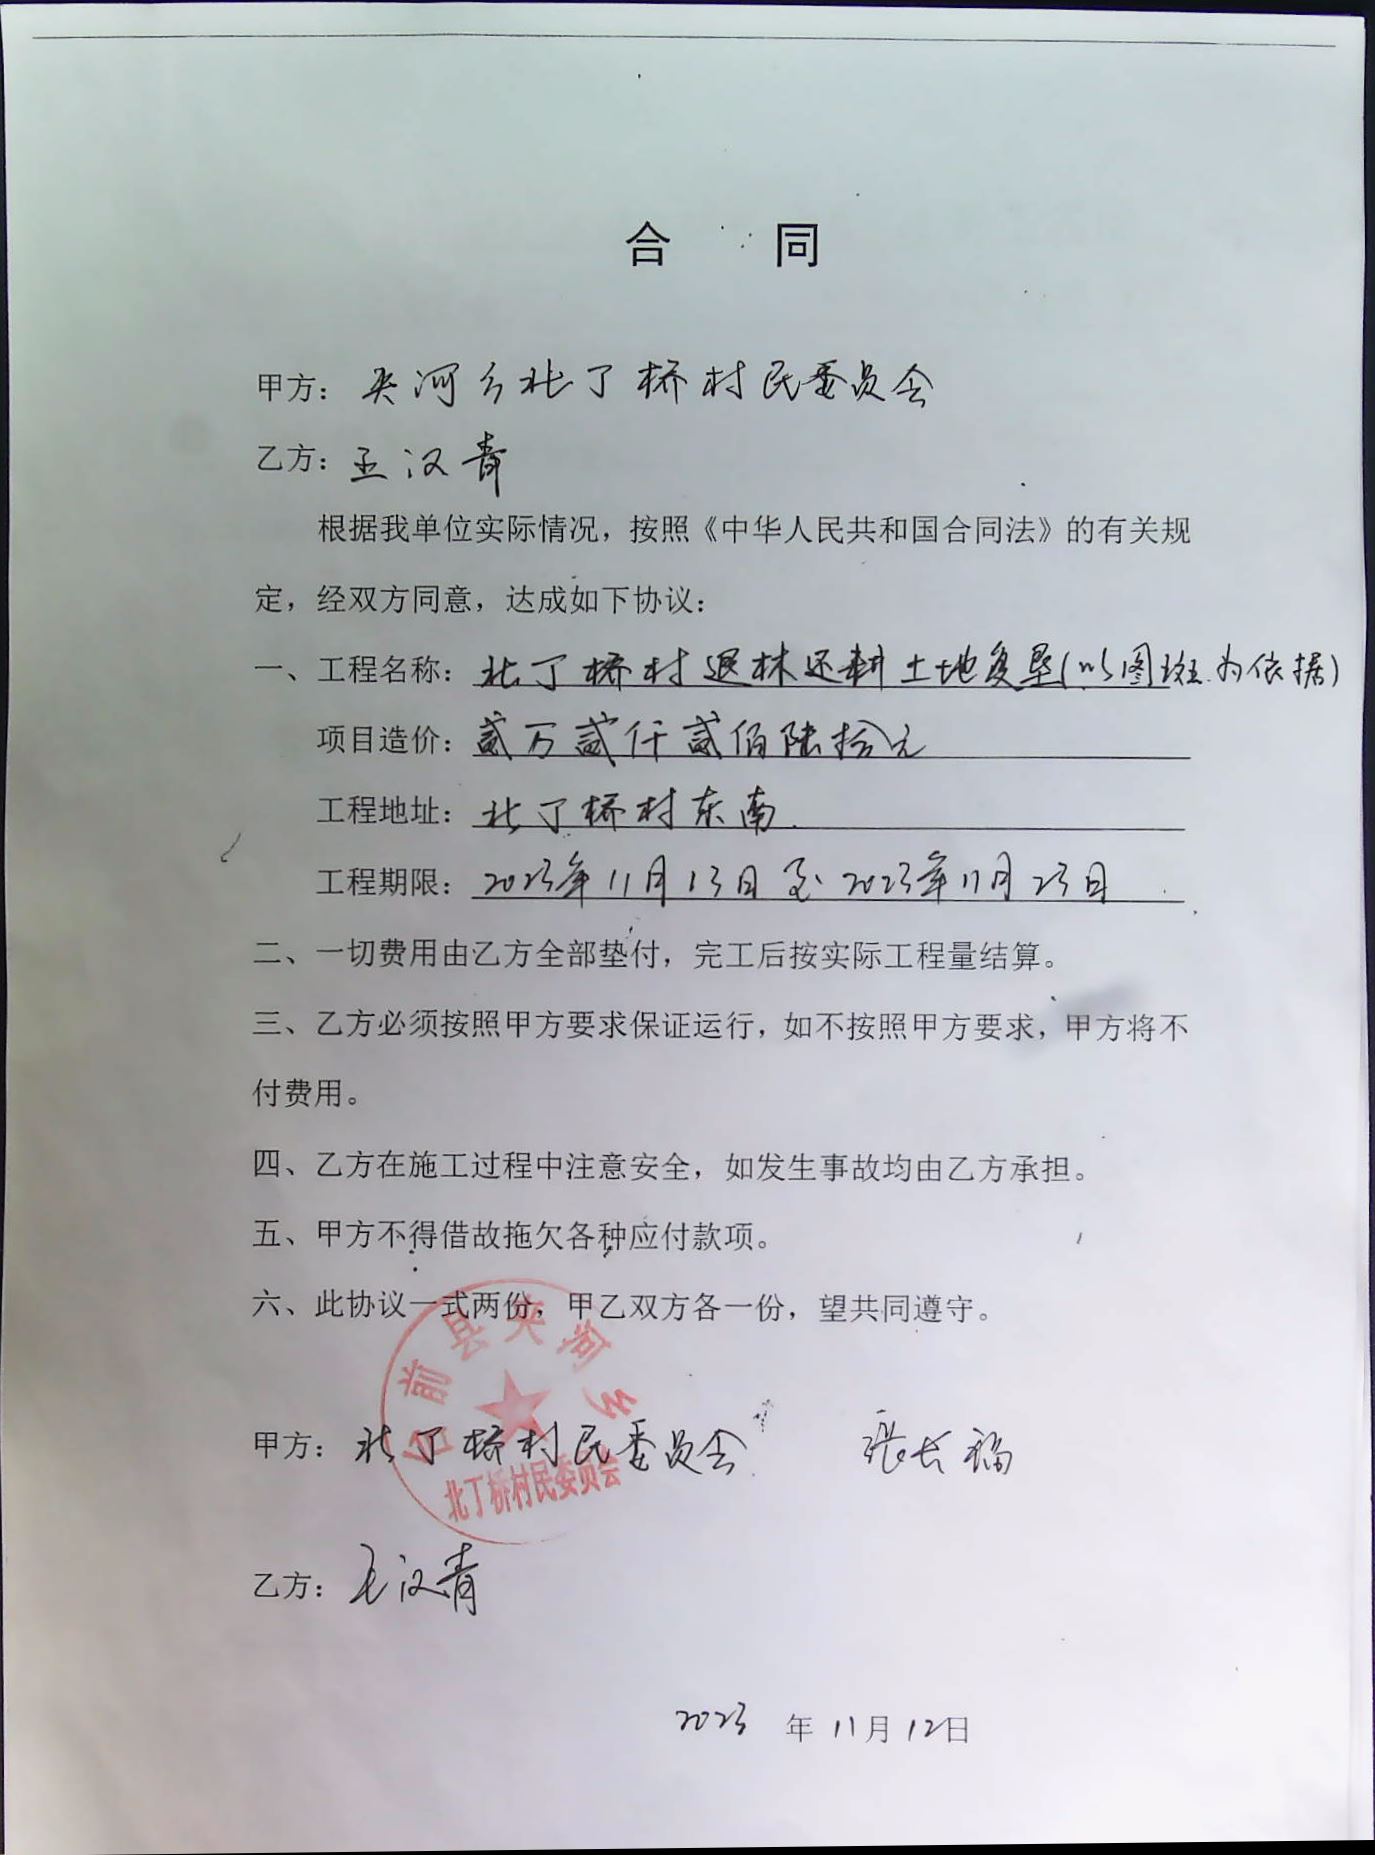 合 同
甲方：夹河乡北丁桥村民委员会
乙方：王汉青
根据我单位实际情况，按照《中华人民共和国合同法》的有关规
定，经双方同意，达成如下协议：
一、工程名称：北丁桥村退林还耕土地复垦(以图斑为依据)
项目造价：贰万贰仟贰佰陆拾元
工程地址：北丁桥村东南
工程期限：2023年11月13日至2023年11月23日
二、一切费用由乙方全部垫付，完工后按实际工程量结算。
三、乙方必须按照甲方要求保证运行，如不按照甲方要求，甲方将不
付费用。
四、乙方在施工过程中注意安全，如发生事故均由乙方承担。
五、甲方不得借故拖欠各种应付款项。
六、此协议一式两份，甲乙双方各一份，望共同遵守。
台前县夹河乡
甲方：北丁桥村民委员会 张长福
北丁桥村民委员会
乙方：王汉青
2023 年 11月 12日